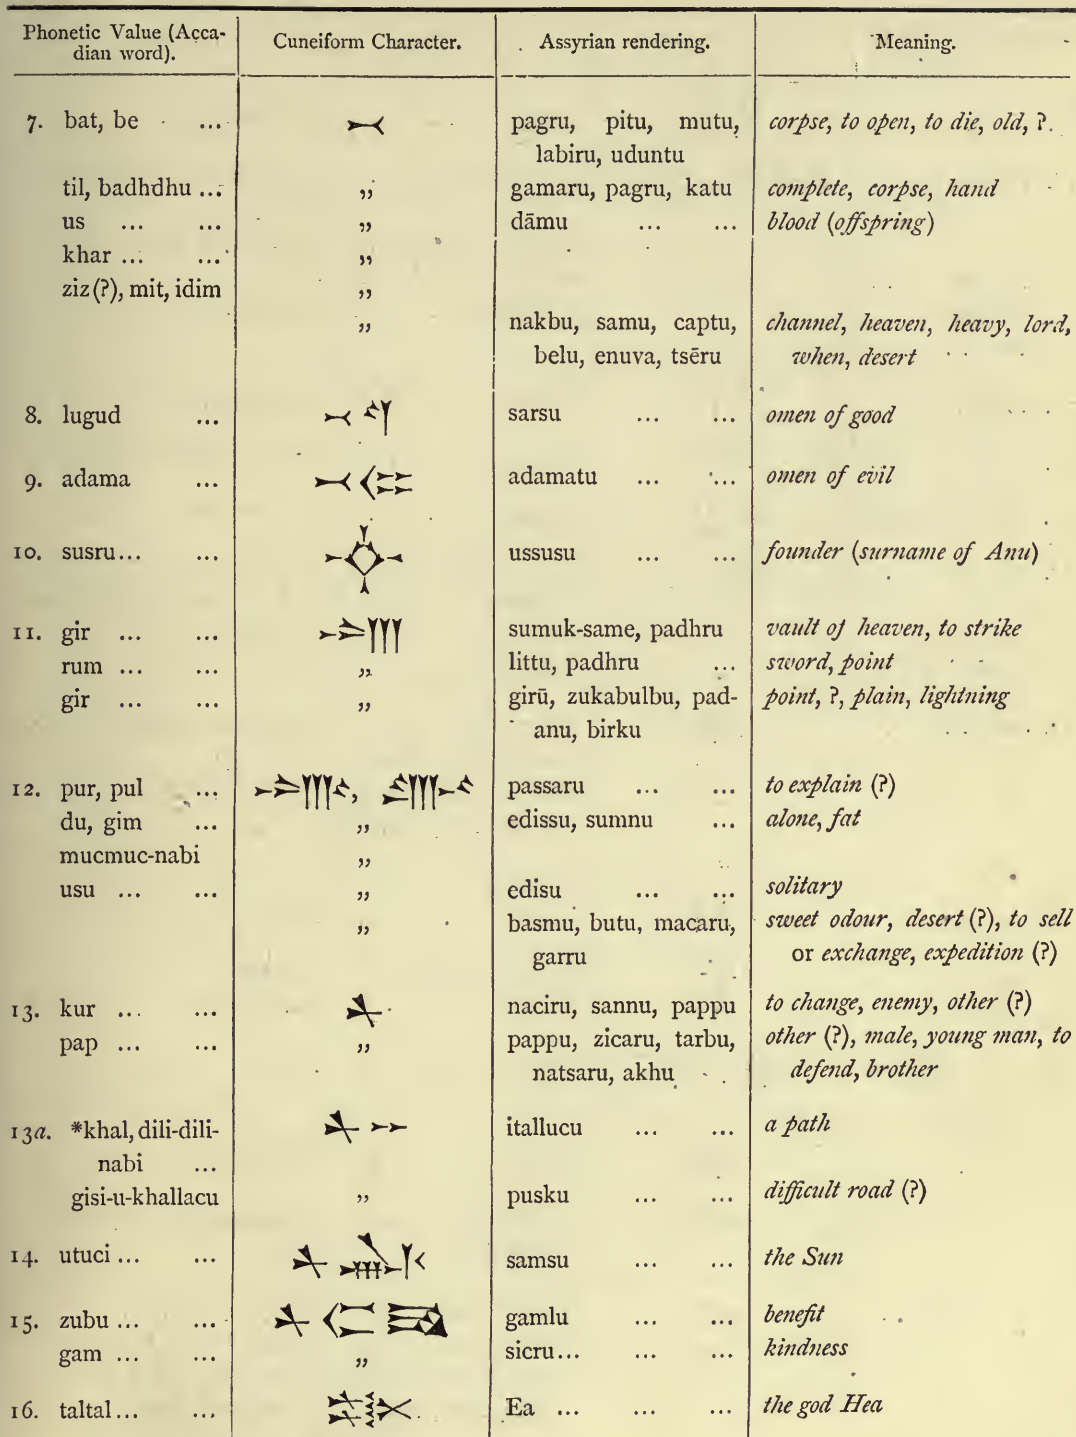 Phonetic Value (Acca- Cuneiform Character. Assyrian rendering. Meaning.
dian word).
7. bat, be ... 𒁁 pagru, pitu, mutu, corpse, to open, to die, old, ?.
labiru, uduntu
til, badhdhu ... ,, gamaru, pagru, katu complete, corpse, hand
us ... ... ,, dāmu ... ... blood (offspring)
khar ... ... ,,
ziz (?), mit, idim ,,
,, nakbu, samu, captu, channel, heaven, heavy, lord,
belu, enuva, tsēru when, desert
8. lugud ... sarsu ... ... omen of good
9. adama ... adamatu ... ... omen of evil
10. susru ... ... ussusu ... ... founder (surname of Anu)
11. gir ... ... sumuk-same, padhru vault of heaven, to strike
rum ... ... ,, littu, padhru ... sword, point
gir ... ... ,, girū, zukabulbu, pad- point, ?, plain, lightning
anu, birku
12. pur, pul ... passaru ... ... to explain (?)
du, gim ... ,, edissu, sumnu ... alone, fat
mucmuc-nabi ,,
usu ... ... ,, edisu ... ... solitary
,, basmu, butu, macaru, sweet odour, desert (?), to sell
garru or exchange, expedition (?)
13. kur ... ... 𒉽 naciru, sannu, pappu to change, enemy, other (?)
pap ... ... ,, pappu, zicaru, tarbu, other (?), male, young man, to
natsaru, akhu defend, brother
13a. *khal, dili-dili- itallucu ... ... a path
nabi ...
gisi-u-khallacu ,, pusku ... ... difficult road (?)
14. utuci ... ... samsu ... ... the Sun
15. zubu ... ... gamlu ... ... benefit
gam ... ... ,, sicru ... ... ... kindness
16. taltal ... ... Ea ... ... ... the god Hea